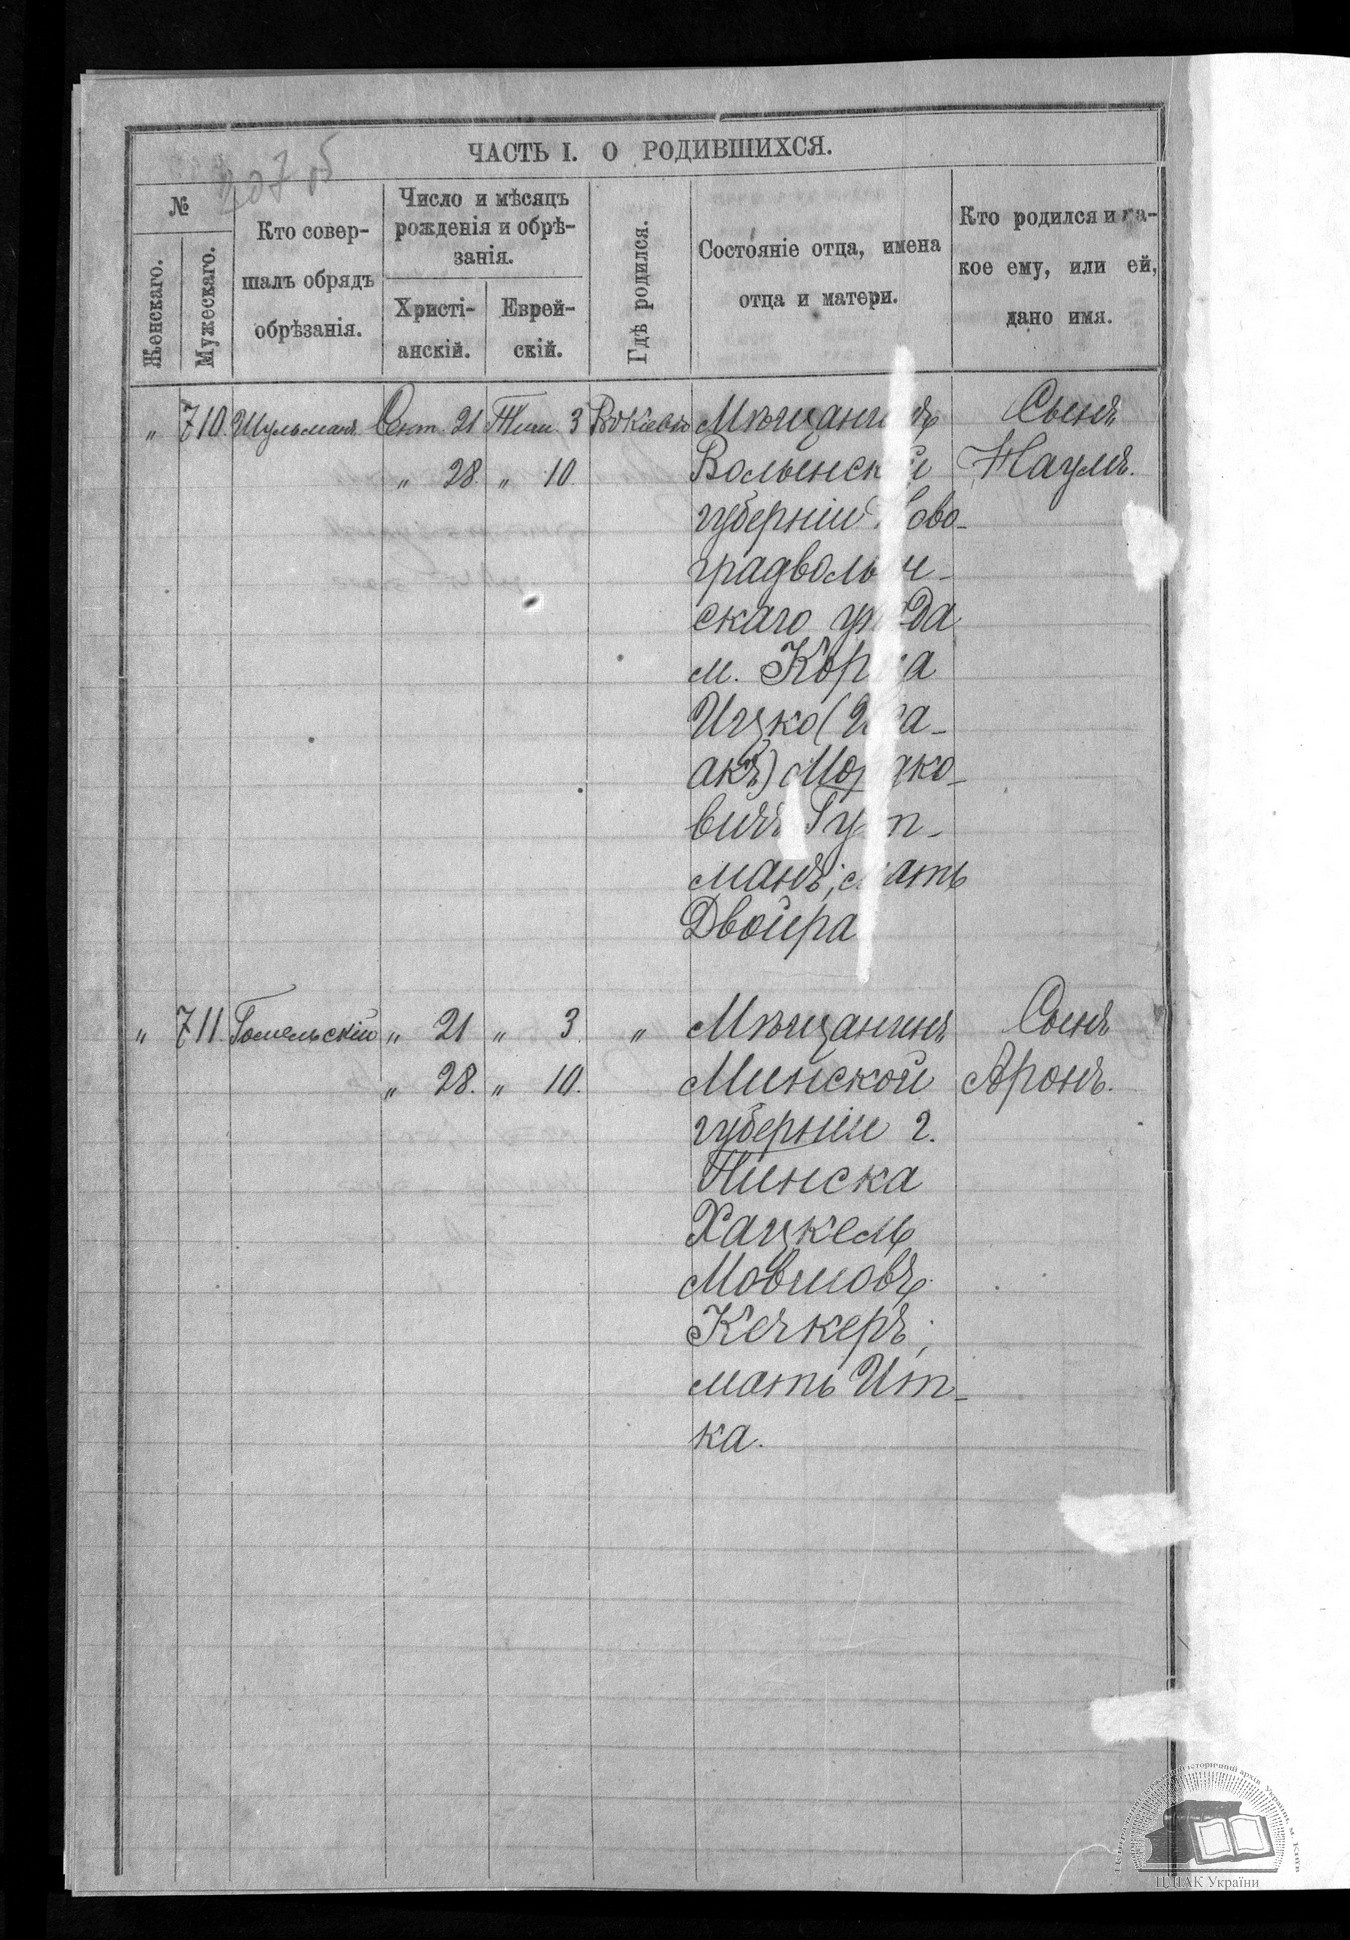 207 об
ЧАСТЬ I. О РОДИВШИХСЯ.
№
Женскаго.
Мужескаго.
Кто совер-
шалъ обрядъ
обрѣзанія.
Число и мѣсяцъ
рожденія и обрѣ-
занія.
Христі-
анскій.
Еврей-
скій.
Гдѣ родился.
Состояніе отца, имена
отца и матери.
Кто родился и ка-
кое ему, или ей,
дано имя.
„ 710. Шульманъ. Сент. 21 Тиш. 3 Въ Кіевѣ Мѣщанинъ Сынъ
„ 28. „ 10. Волынской Наумъ.
губерніи Ново-
градволын-
скаго уѣзда
м. Корца
Ицко (Иса-
акъ) Мордко-
вичъ Гут-
манъ; мать
Двойра
„ 711. Гомельскій „ 21 „ 3. „ Мѣщанинъ Сынъ
„ 28. „ 10. Минской Аронъ.
губерніи г.
Пинска
Хацкель
Мовшовъ
Кечкеръ;
мать Ит-
ка.
Центральний державний історичний архів України, м. Київ
ЦДІАК України